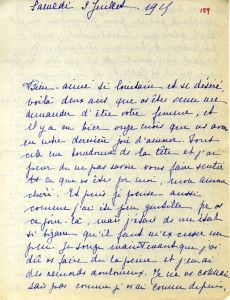 Samedi 3 Juillet 1915
159
Bien-aimé si lointain et si désiré,
voilà deux ans que es venu me
demander d'être votre femme, et
il y a eu hier onze mois que nous avons
eu notre dernière joie d'amour. Tout
cela me bourdonne la tête et j'ai
peur de ne pas savoir vous faire sentir
ce que es pour moi, mon amour
chéri. Et puis je pense aussi
comme j'ai été peu gentille
ce jour-là, mais j'étais dans un état
si bizarre qu'il faut m'excuser un
peu. Je songe maintenant que j'ai
dû faire de la peine et j'en ai
des remords douloureux. Je ne connais
sais pas comme je connais depuis,